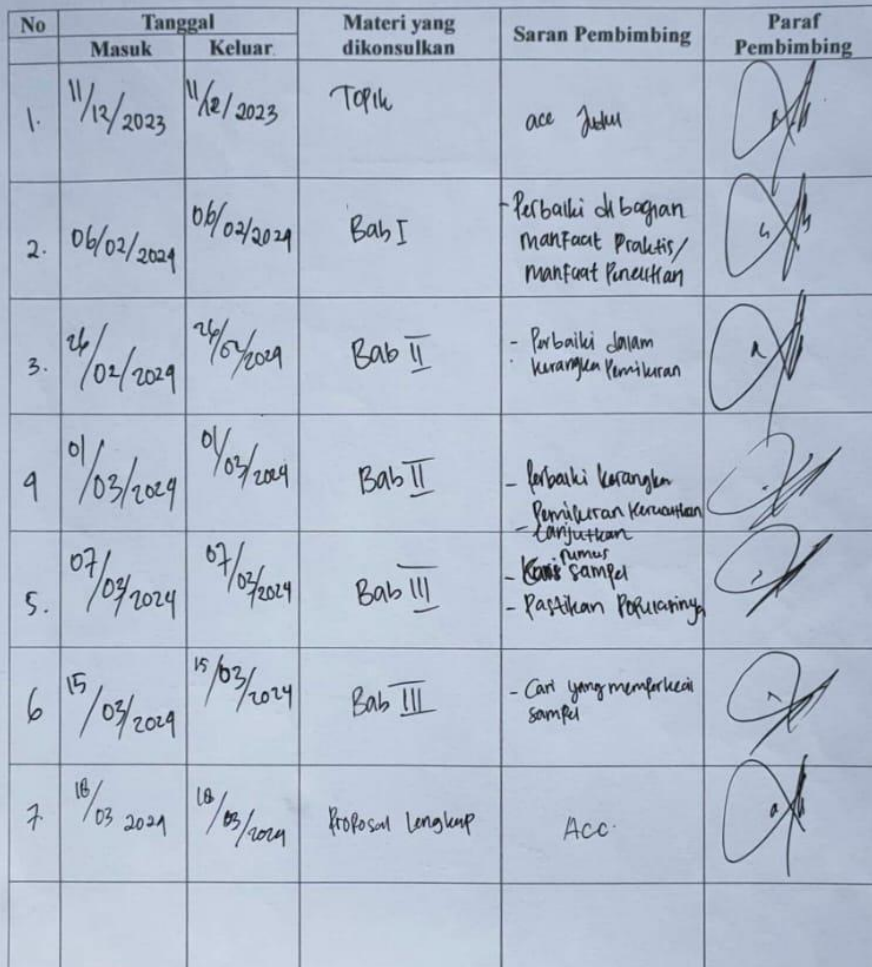 No Tanggal Materi yang dikonsulkan Saran Pembimbing Paraf Pembimbing
Masuk Keluar
1. 11/12/2023 11/12/2023 Topik acc Judul
2. 06/02/2024 06/02/2024 Bab I - Perbaiki di bagian
manfaat Praktis/
manfaat Penelitian
3. 26/02/2024 26/02/2024 Bab II - Perbaiki dalam
kerangka Pemikiran
4 01/03/2024 01/03/2024 Bab II - Perbaiki kerangka
Pemikiran
- Lanjutkan
5. 07/03/2024 07/03/2024 Bab III - rumus sampel
- Pastikan Populasinya
6 15/03/2024 15/03/2024 Bab III - Cari yang memperkecil
sampel
7. 18/03 2024 18/03/2024 Proposal Lengkap Acc.